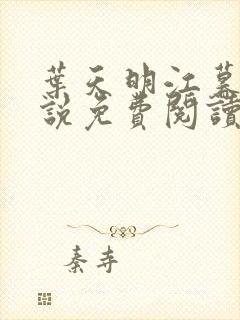 葉天明江慕
說免費閱讀
秦寺